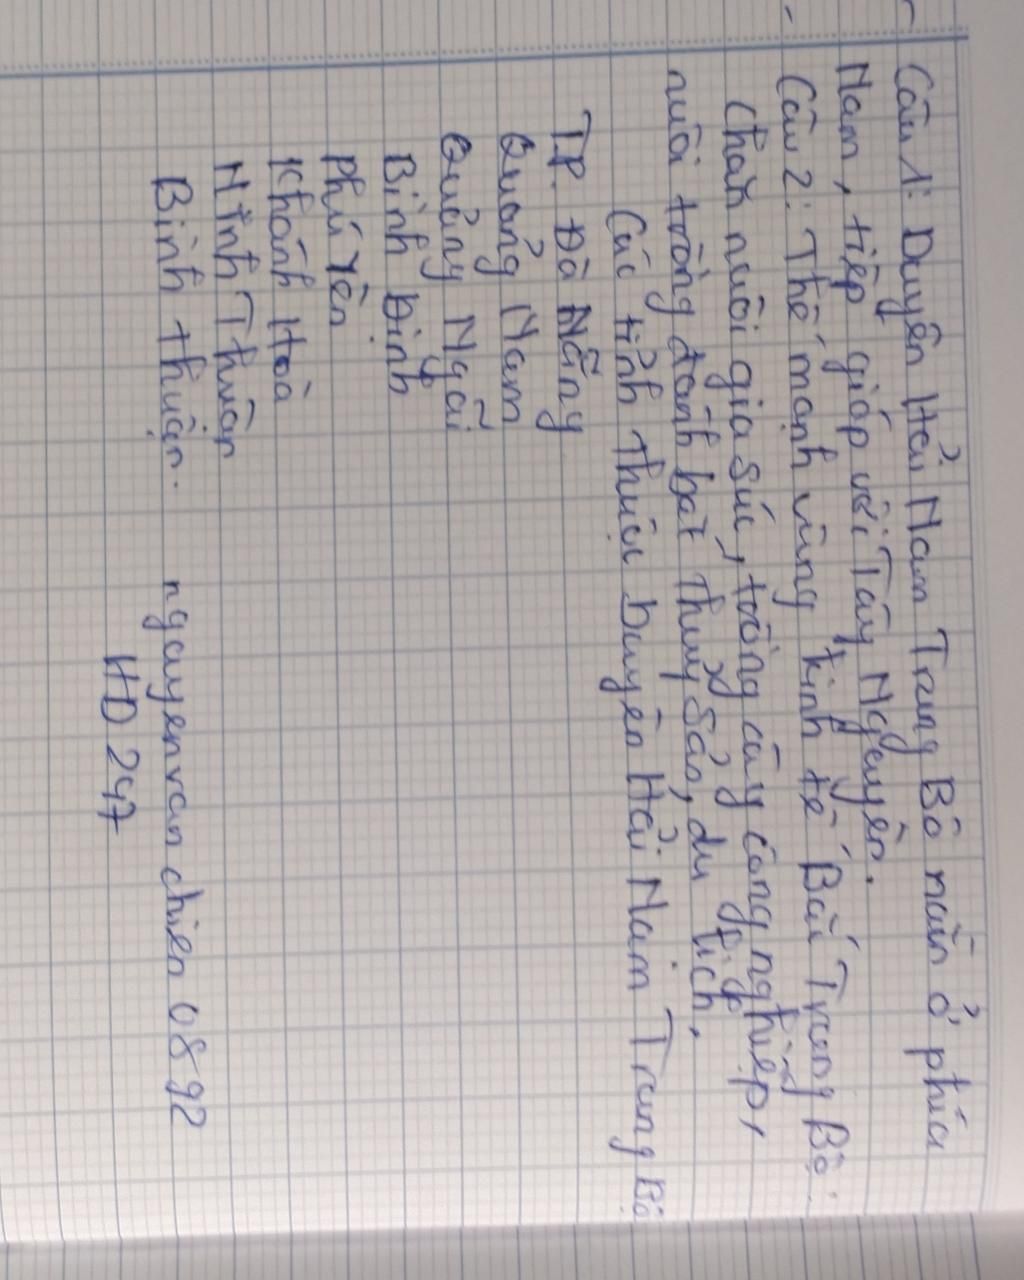 Câu 1: Duyên Hải Nam Trung Bộ nằm ở phía
Nam, tiếp giáp với Tây Nguyên.
Câu 2: Thế mạnh vùng kinh tế Bắc Trung Bộ:
chăn nuôi gia súc, trồng cây công nghiệp,
nuôi trồng đánh bắt thuỷ sản, du lịch.
Các tỉnh thuộc Duyên Hải Nam Trung Bộ
TP. Đà Nẵng
Quảng Nam
Quảng Ngãi
Bình Định
Phú Yên
Khánh Hoà
Ninh Thuận
Bình Thuận.
nguyenvanchien 0892
HD 247